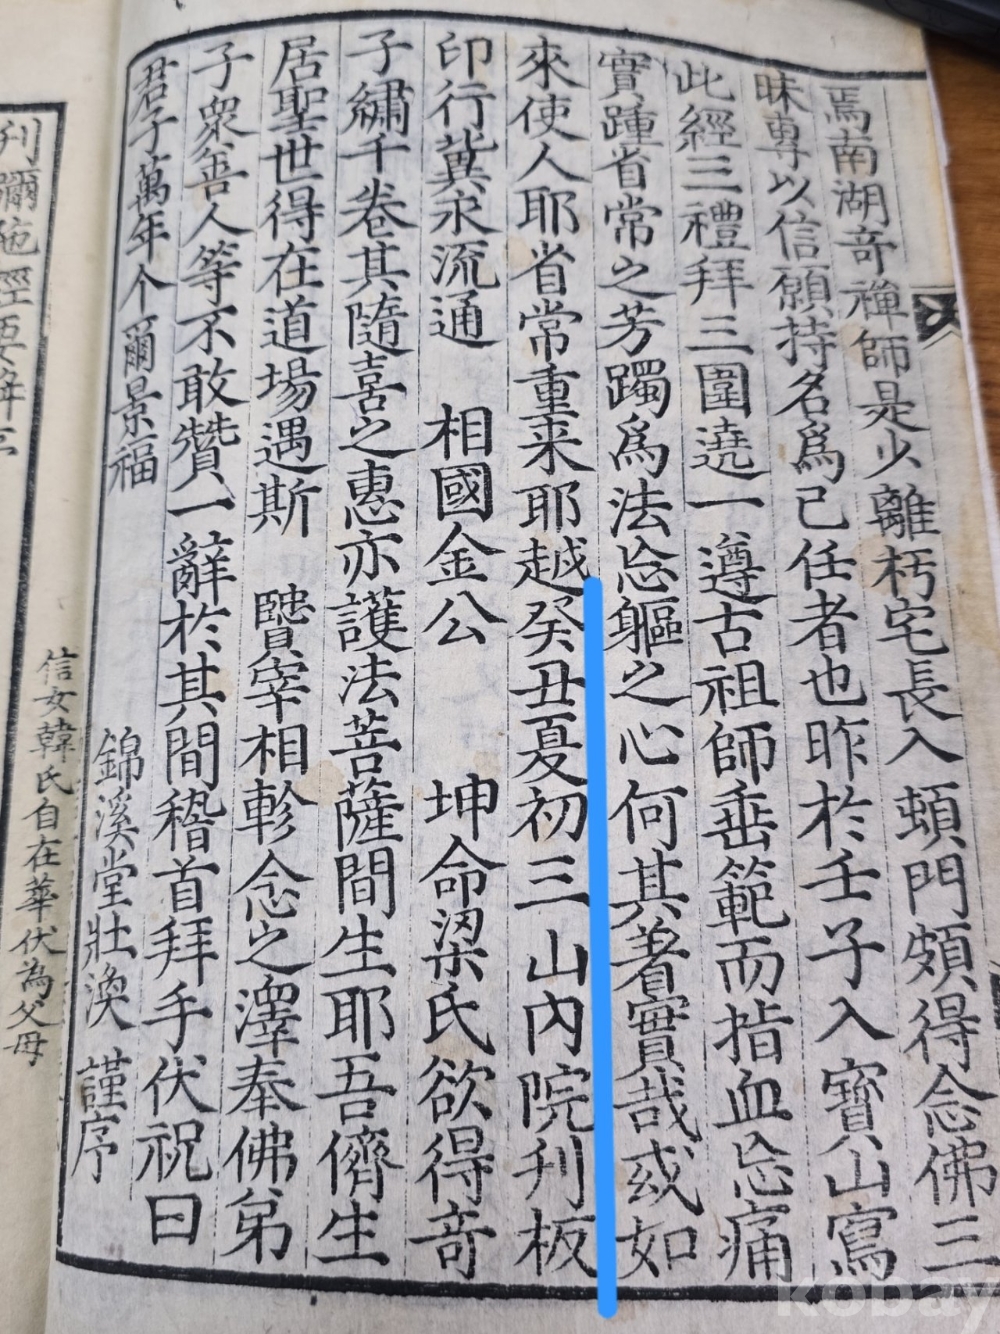 焉南湖奇禪師是少離朽宅長入頓門頗得念佛三
昧專以信願持名爲己任者也昨於壬子入寶山寫
此經三禮拜三圍遶一遵古祖師垂範而指血忘痛
實踵省常之芳躅爲法忘軀之心何其着實哉或如
來使人耶省常重來耶越癸丑夏初三山內院刋板
印行冀永流通 相國金公 坤命梁氏欲得奇
子繡千卷其隨喜之惠亦護法菩薩間生耶吾儕生
居聖世得在道場遇斯 賢宰相軫念之澤奉佛弟
子衆善人等不敢贊一辭於其間稽首拜手伏祝曰
君子萬年介爾景福
錦溪堂壯渙 謹序
刋彌陁經要觧
信女韓氏自在華伏為父母
kobay